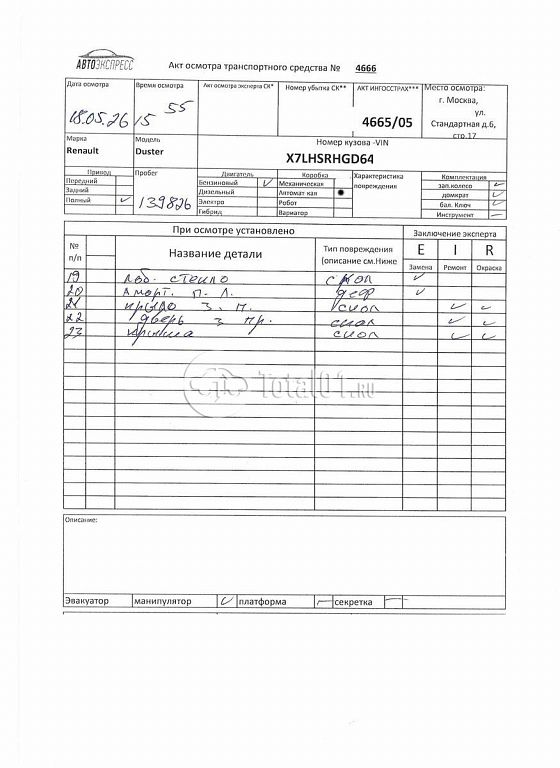 АВТОЭКСПРЕСС
Акт осмотра транспортного средства № 4666
Дата осмотра
18.05.26
Время осмотра
15 55
Акт осмотра эксперта СК*
Номер убытка СК**
АКТ ИНГОССТРАХ***
4665/05
Место осмотра:
г. Москва,
ул.
Стандартная д.6,
стр.17
Марка
Renault
Модель
Duster
Номер кузова -VIN
X7LHSRHGD64
Привод
Передний
Задний
Полный
Пробег
139826
Двигатель
Бензиновый
Дизельный
Электро
Гибрид
Коробка
Механическая
Автомат кая
Робот
Вариатор
Характеристика
повреждения
Комплектация
зап.колесо
домкрат
бал. Ключ
Инструмент
При осмотре установлено
Заключение эксперта
№
п/п
Название детали
Тип повреждения
(описание см.Ниже
E I R
Замена Ремонт Окраска
19 Лоб. стекло скол
20 Аморт. П. Л. деф
21 крыло З. П. скол
22 дверь З пр. скол
23 крыша скол
Total01.RU
Описание:
Эвакуатор манипулятор платформа секретка